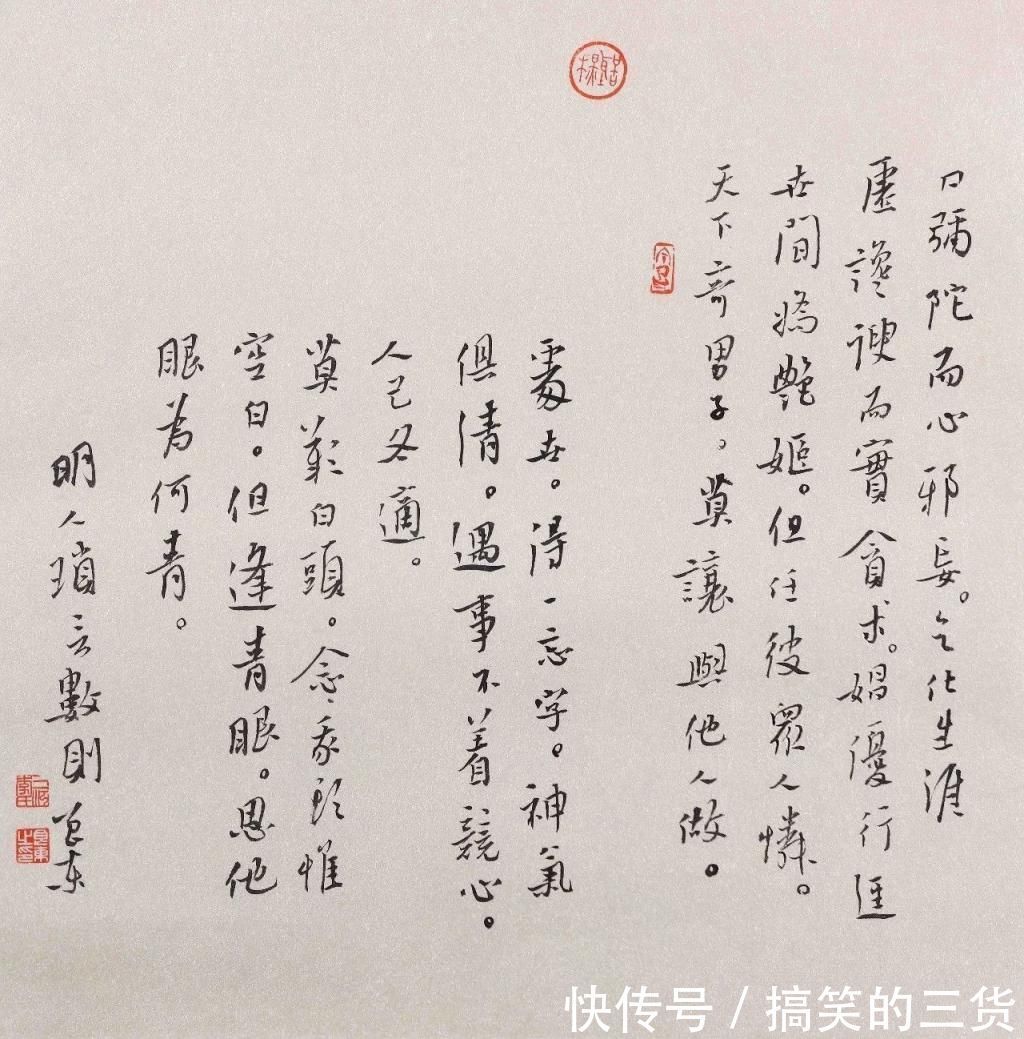 口彌陀而心邪妄。乞化生涯
虛讒謏而實貪求。娼優行逕
世間嬌艷姬。但任彼眾人憐。
天下奇男子。莫讓與他人做。
處世。得一忘字。神氣
俱清。遇事不着競心。
人己各適。
莫歎白頭。念我頭惟
空白。但逢青眼。思他
眼為何青。
明人瑣言數則
快传号/搞笑的三货